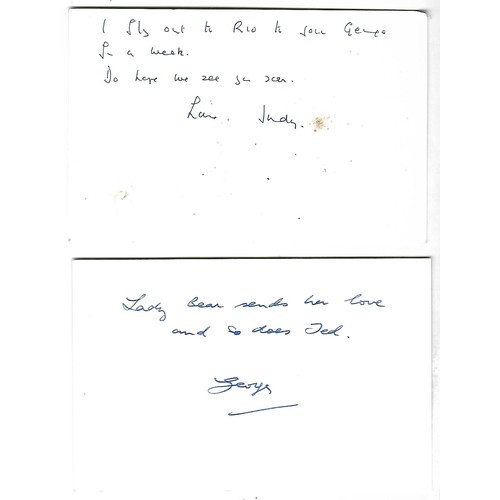 I fly out to Rio to join George
for a week.
Do hope we see you soon.
Love. Judy.
Lady Bear sends her love
and so does Ted.
George